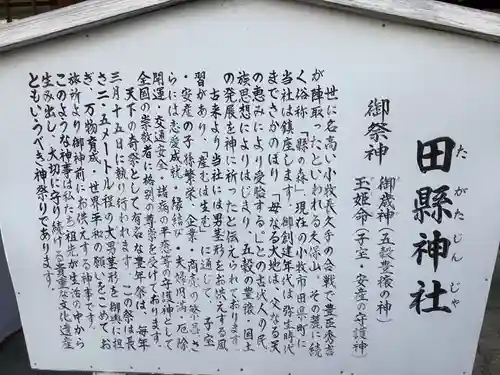 田縣神社
たがたじんじゃ
御祭神
御歳神（五穀豊穣の神）
玉姫命（子宝・安産の守護神）
世に名高い小牧長久手の合戦で豊臣秀吉
が陣取ったといわれる大保山。その麓に続
く俗称「縣の森」、現在の小牧市田県町に
当社は鎮座します。御創建年代は弥生時代
までさかのぼり「母なる大地は、父なる天
の恵みにより受胎する」との古代人の民
族思想によりはじまり、五穀の豊穣、国土
の発展を神に祈ったと伝えられております。
古来より当社には男茎形をお供えする風
習があり、「産むは生む」に通じて、子宝
・安産の子孫繁栄、企業・商売の繁昌さ
らには恋愛成就・縁結び・夫婦円満・厄除
開運・交通安全・諸病の平癒等の守護神として
全国の崇敬者に格別の尊崇を受けております。
天下の奇祭として有名な豊年祭は、毎年
三月十五日に執り行われます。この祭は長
さ二・五メートル程の大男茎形を御輿に担
ぎ、万物育成・世界平和の願いをこめてお
旅所より御神前にお供えする神事です。
このような神事は私たち祖先が生活の中から
生み出し、大切に守り続ける貴重な文化遺産
ともいうべき神祭りであります。